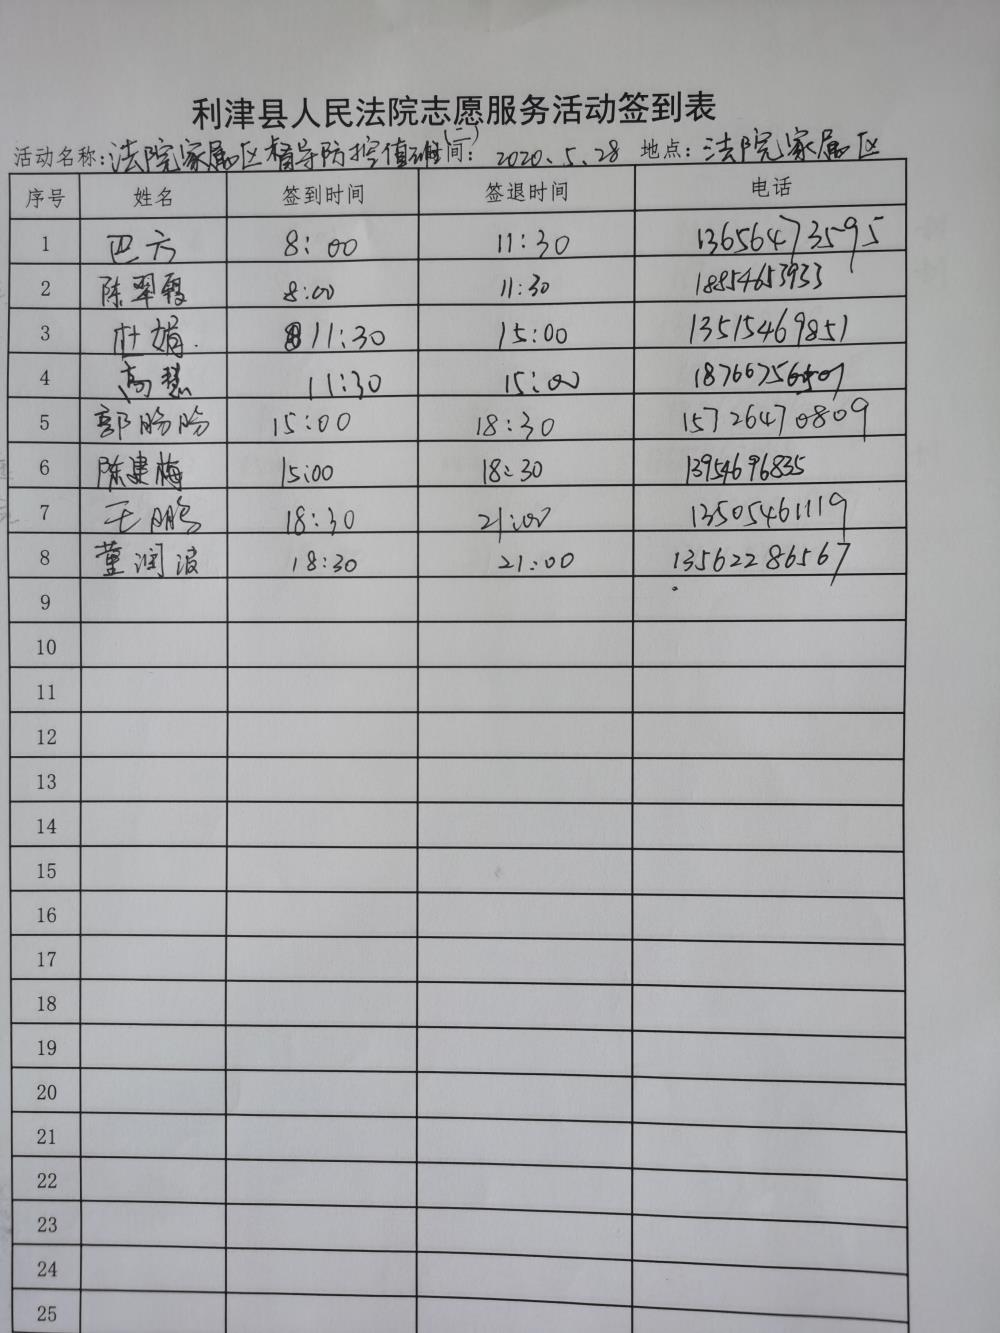 利津县人民法院志愿服务活动签到表
活动名称:法院家属区督导防控值班(二)时间:2020.5.28 地点:法院家属区
序号 姓名 签到时间 签退时间 电话
1 8:00 11:30 13656473595
2 陈翠霞 8:00 11:30 18854653933
3 杜娟. 11:30 15:00 13515469851
4 高慧 11:30 15:00
5 郭肠肠 15:00 18:30 15726470809
6 陈建梅 15:00 18:30 13954696835
7 王鹏 18:30 21:00 13505461119
8 董润波 18:30 21:00 13562286567
9
10
11
12
13
14
15
16
17
18
19
20
21
22
23
24
25